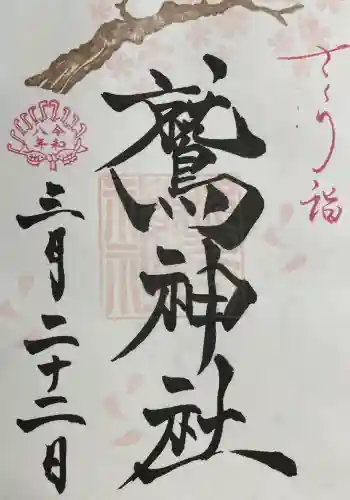 さくら詣
鷲神社
令和八年
三月二十二日